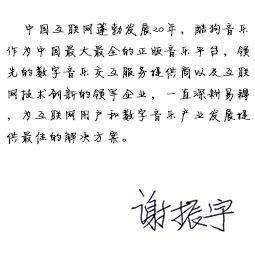 中国互联网蓬勃发展20年，酷狗音乐
作为中国最大最全的正版音乐平台，领
先的数字音乐交互服务提供商以及互联
网技术创新的领军企业，一直深耕易耨
，为互联网用户和数字音乐产业发展提
供最佳的解决方案。
谢振宇